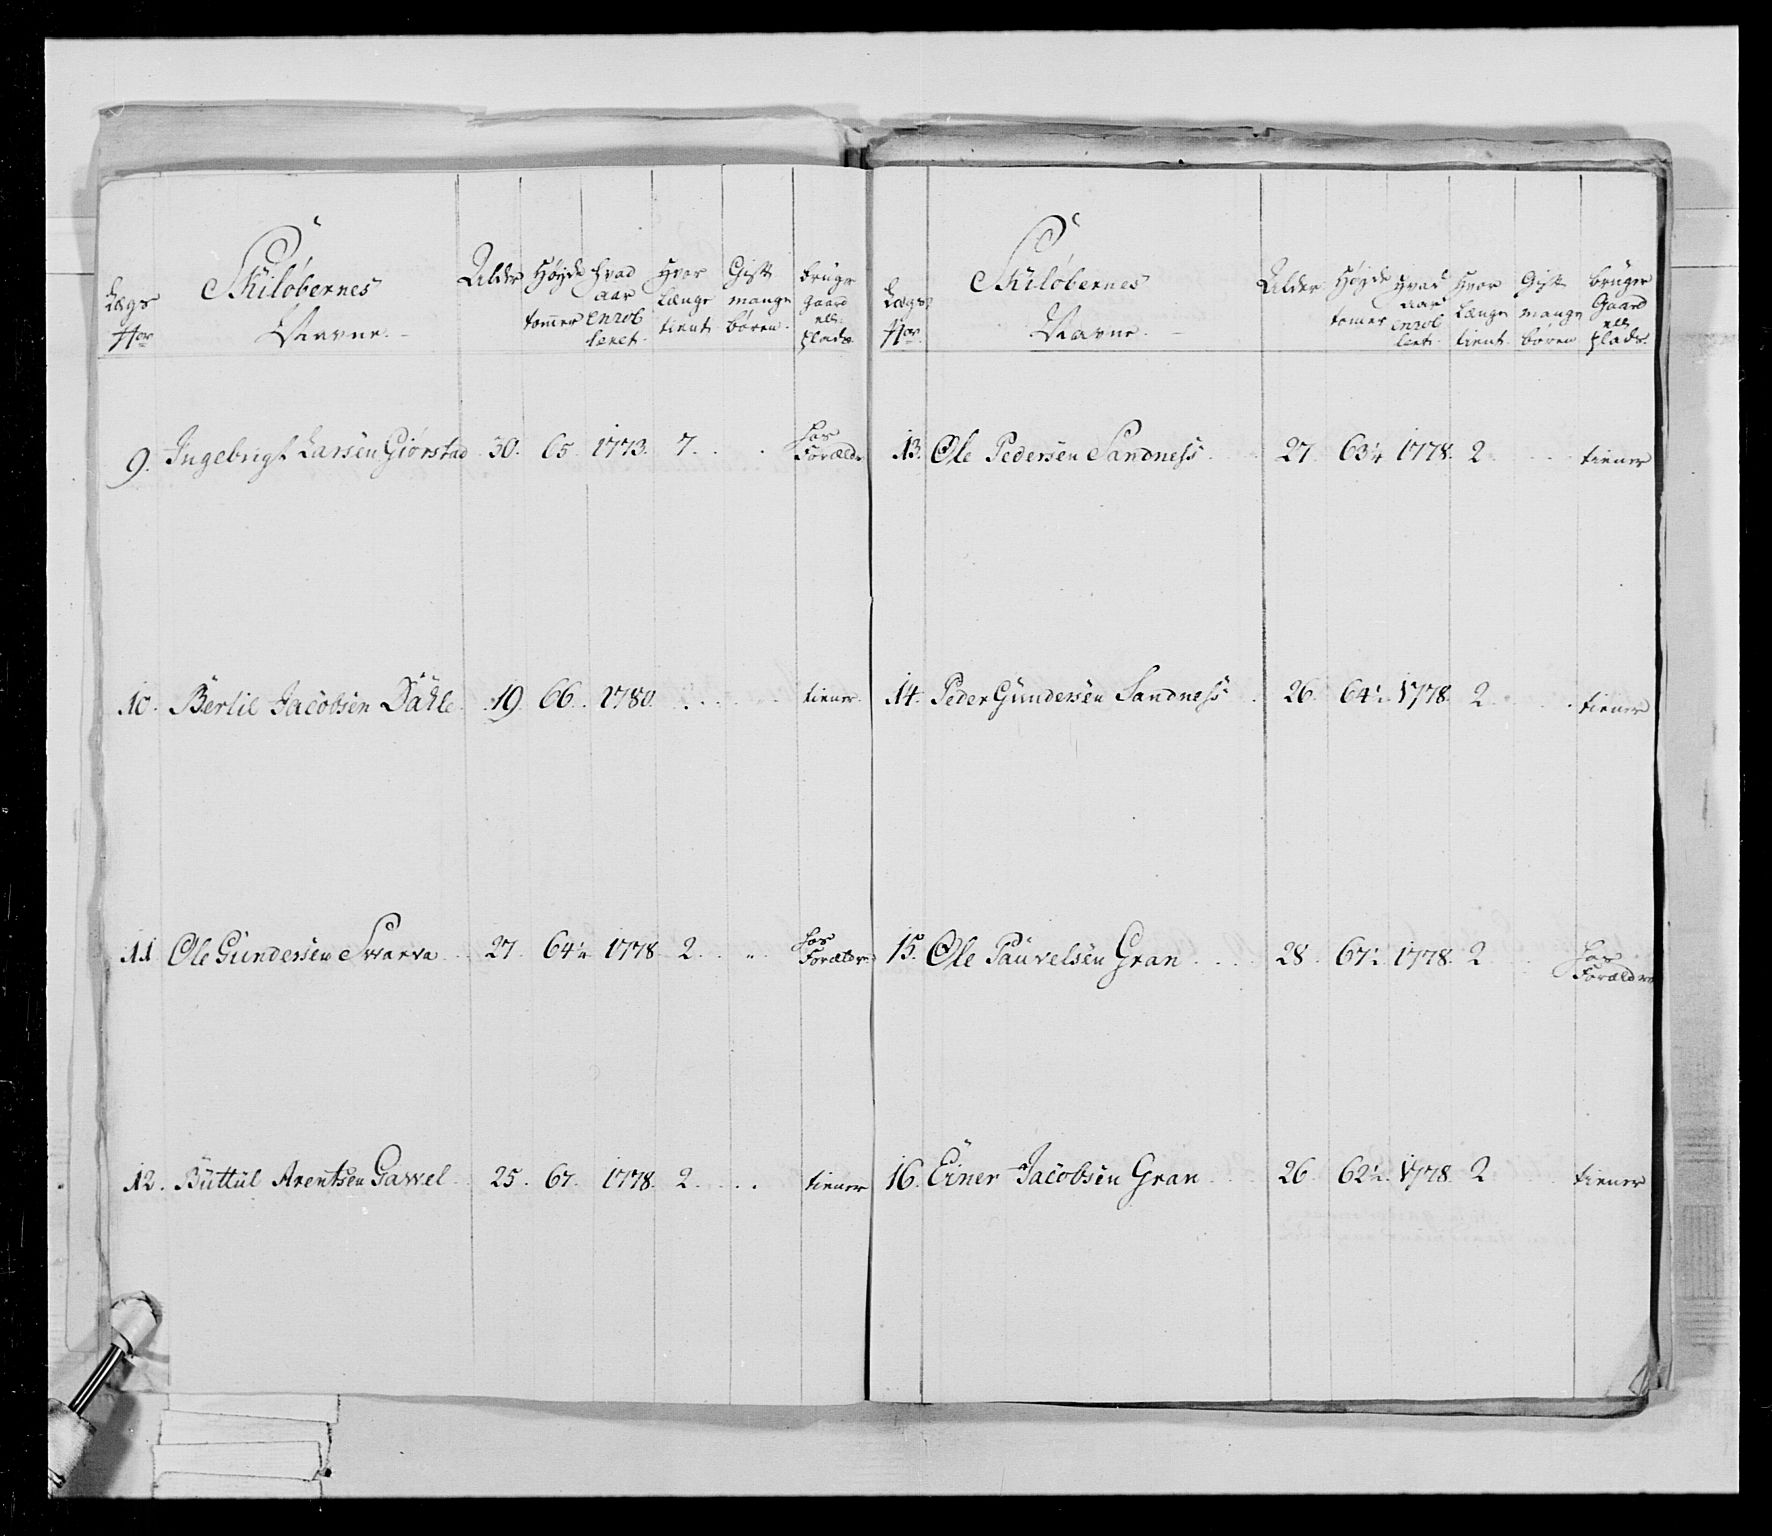 Lægs No:
Skiløbernes Navne.
Alder
Høyde tom̄er
Hvad aar enrolleret.
Hvor længe tient
Gift mange børen.
bruger Gaard ell: plads.
9. Ingebrigt Larsen Giørstad 30. 65. 1773. 7. . . hos Forældr
10. Bertil Jacobsen Dahle. 19. 66. 1780. . . . . tiener.
11. Ole Gundersen Svarva 27. 64½ 1778. 2. . „ . hos Forældre
12. Buttul Arentsen Gavvel. 25. 67. 1778. 2. . . . tiener
Lægs No:
Skiløbernes Navne.
Alder
Høyde tomer
Hvad aar enrolleret.
Hvor længe tient
Gift mange børen
bruger Gaard ell: plads.
13. Ole Pedersen Sandness. 27. 63¼ 1778. 2. . . tiener
14. Peder Gundersen Sandness. 26. 64½. 1778. 2. . . tiener
15. Ole Pauvelsen Gran. . . 28. 67½. 1778. 2 . hos Forældre
16. Einer Jacobsen Gran . . 26. 62½. 1778. 2 . . tiener